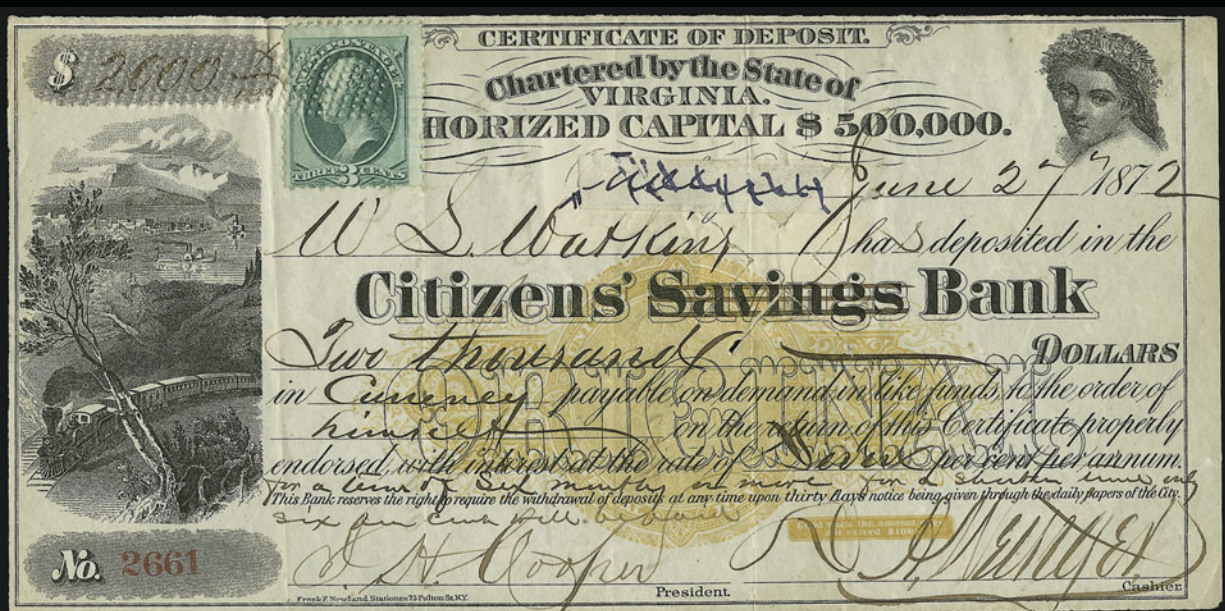 $ 2,000
U.S. POSTAGE
THREE 3 CENTS
CERTIFICATE OF DEPOSIT.
Chartered by the State of
VIRGINIA.
HORIZED CAPITAL $ 500,000.
June 27 1872
W S. Watkins has deposited in the
Citizens' Savings Bank
Two thousand DOLLARS
in Currency payable on demand in like funds, to the order of
himself on the return of this Certificate properly
ORIGINAL
endorsed, with interest at the rate of Seven per cent per annum.
for a term of Six months or more for a shorter time only
This Bank reserves the right to require the withdrawal of deposits at any time upon thirty days notice being given through the daily papers of the City.
six per cent will be paid
No. 2661
Cooper
President.
Cashier.
Frank F. Newland Stationer 75 Fulton St. N.Y.